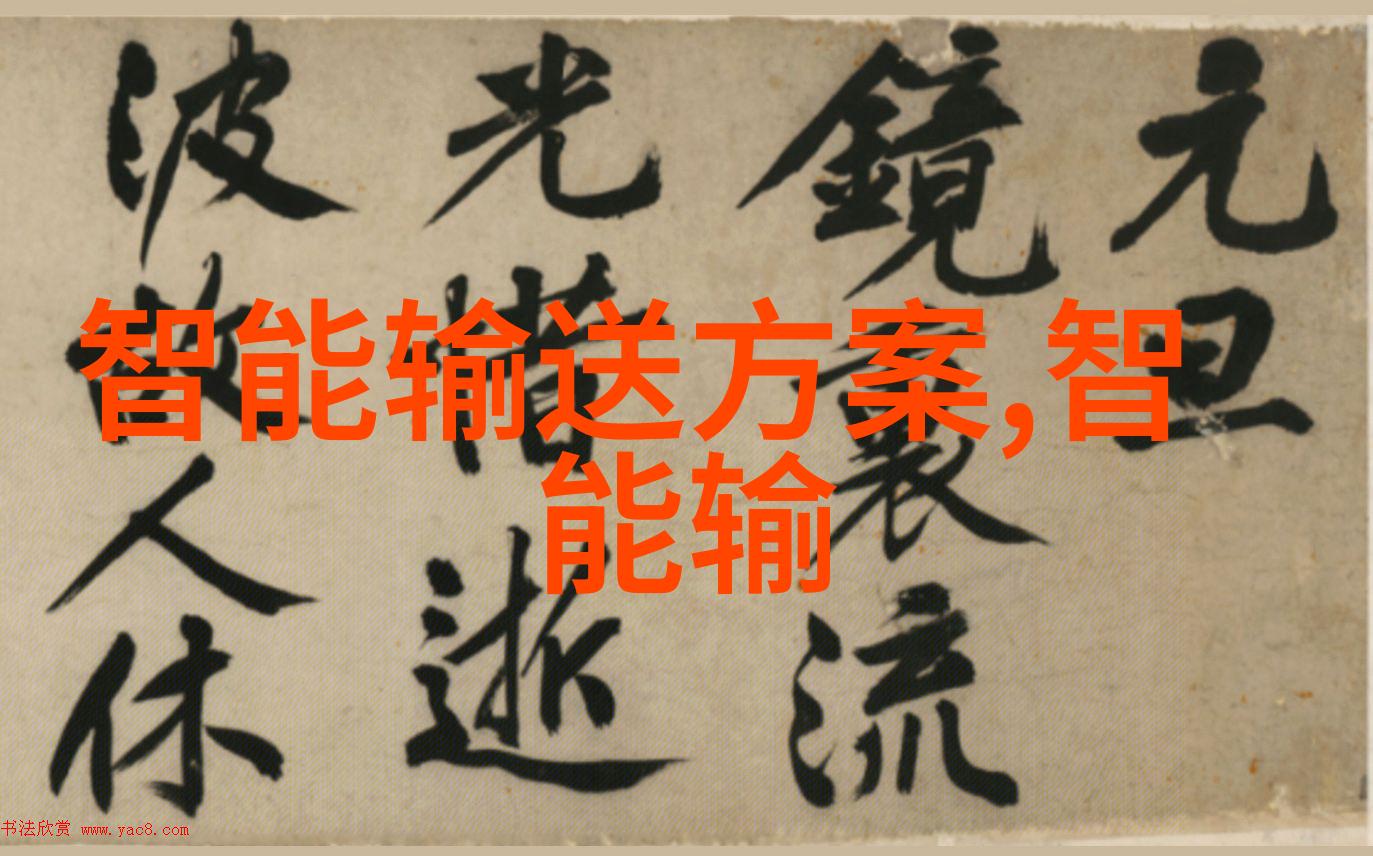 元旦
鏡裏流
光惜逝
波故人休
智能输送方案,智
能输
书法欣赏 www.yac8.com